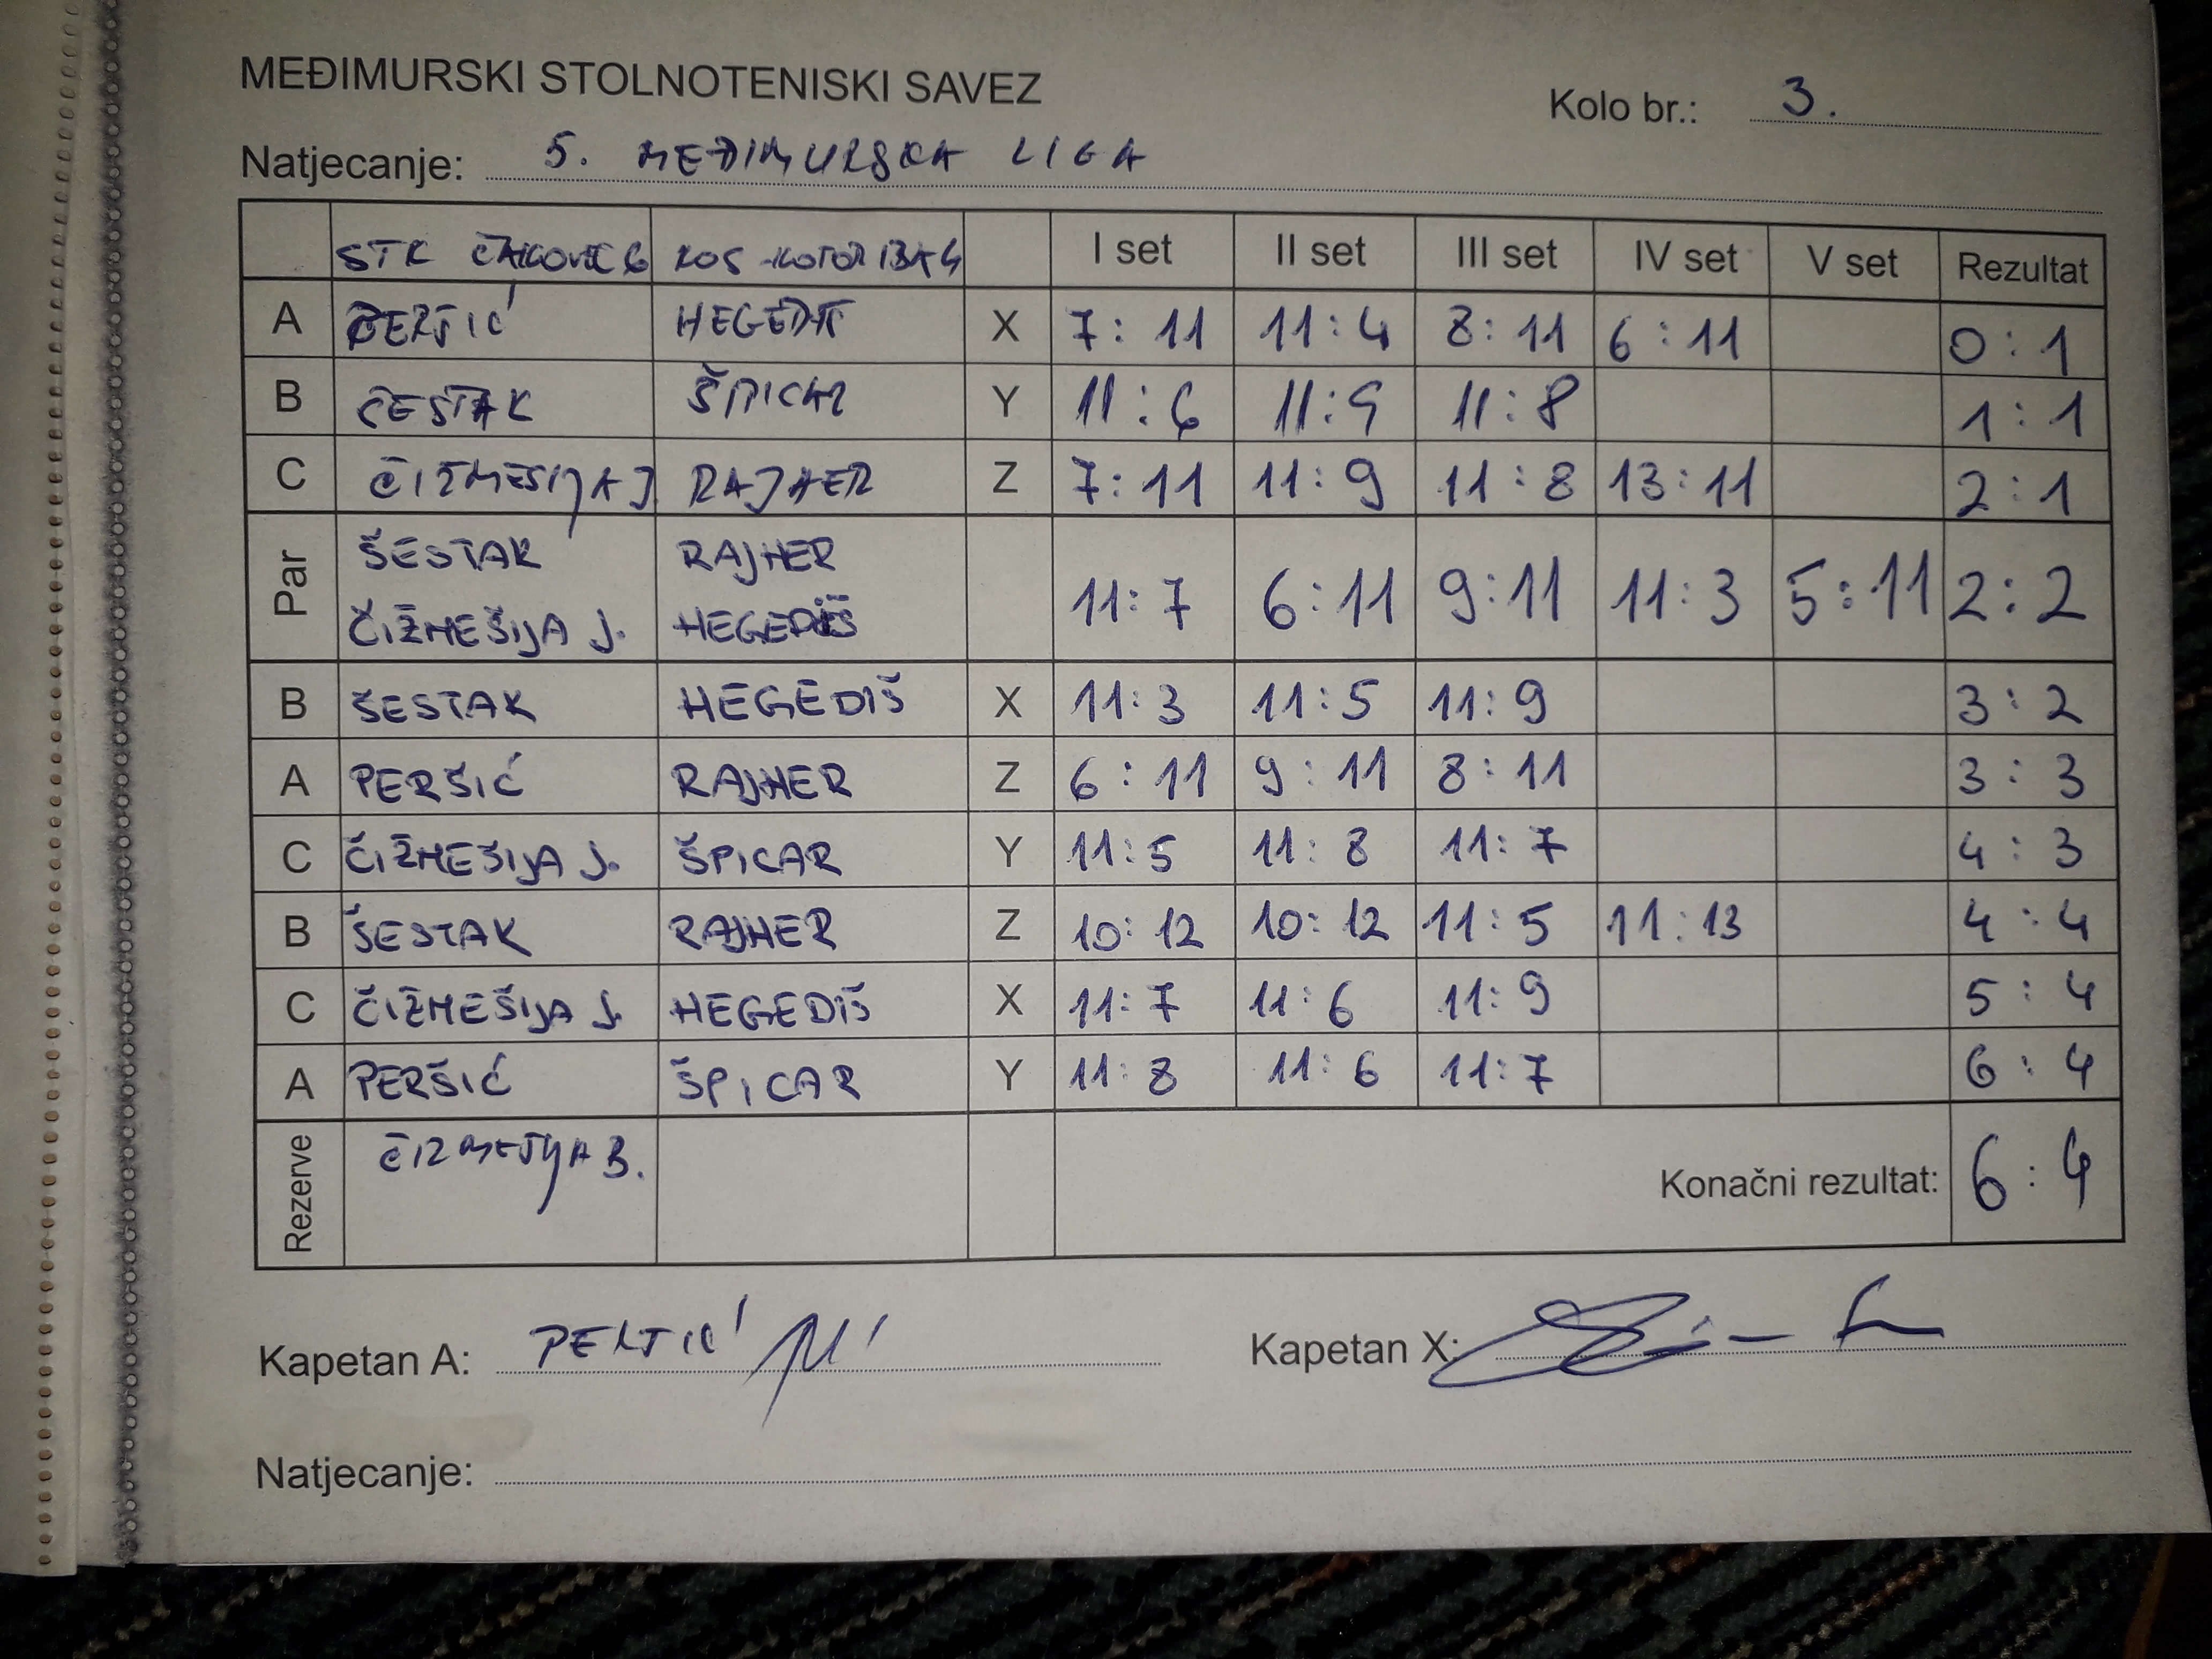 MEĐIMURSKI STOLNOTENISKI SAVEZ
Kolo br.: 3.
Natjecanje: 5. MEĐIMURSKA LIGA
STK ČAKOVEC 6 KOS-KOTORIBA 4 I set II set III set IV set V set Rezultat
A PERŠIĆ HEGEDIŠ X 7:11 11:4 8:11 6:11 0:1
B ŠESTAK ŠPICAR Y 11:6 11:9 11:8 1:1
C ČIŽMEŠIJA J RAJHER Z 7:11 11:9 11:8 13:11 2:1
Par ŠESTAK RAJHER
ČIŽMEŠIJA J. HEGEDIŠ 11:7 6:11 9:11 11:3 5:11 2:2
B ŠESTAK HEGEDIŠ X 11:3 11:5 11:9 3:2
A PERŠIĆ RAJHER Z 6:11 9:11 8:11 3:3
C ČIŽMEŠIJA J. ŠPICAR Y 11:5 11:8 11:7 4:3
B ŠESTAK RAJHER Z 10:12 10:12 11:5 11:13 4:4
C ČIŽMEŠIJA J. HEGEDIŠ X 11:7 11:6 11:9 5:4
A PERŠIĆ ŠPICAR Y 11:8 11:6 11:7 6:4
Rezerve ČIŽMEŠIJA B. Konačni rezultat: 6:4
Kapetan A: PERŠIĆ
Kapetan X:
Natjecanje: